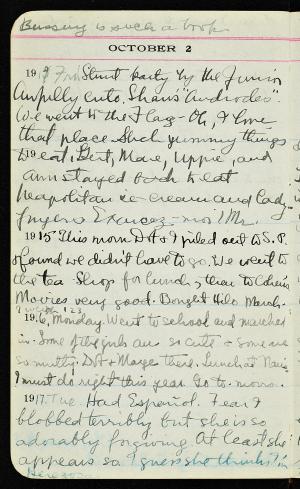 Bussing is such a bore.
OCTOBER 2
1914 Fri. Stunt party by the Junior
Awfully cute. Shaw's "Androcles".
We went to the Flag - Oh, I love
that place. Such yummy things
to eat. Gert, Marie, and
Ann stayed back to eat
Neapolitan ice-cream and lady-
fingers
1915 This morn Dot & I piled out to S.P.
& found we didn't have to go. We went to
the tea Shop for lunch, then to
Movies very good. Bought Hilo March.
1916, Monday. Went to school and marched
in. Some of the girls are so cute & some are
so nutty. Dot & Marge there. Lunch at
I must do right this year. So to-morrow.
1917. Tue. Had Español. Fear I
blobbed terribly but she is so
adorably forgiving. At least she
appears so. I guess she thinks I'm